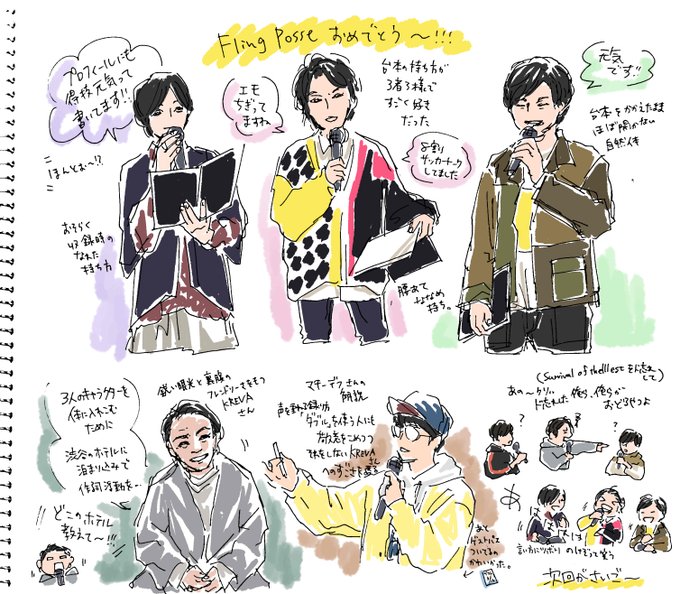 Fling Posse おめでとう〜!!!
プロフィールにも
得技元気って
書いてます!!
ほんとぉ〜!?
おそらく
収録時の
なれた
持ち方
エモ
ちぎって
ますね
台本の持ち方が
3者3様で
すごく好き
だった
8割
サッカートーク
してました
腰あて
ななめ
持ち。
元気
です!!
台本をかかえたまま
ほぼ開かない
自然体
3人のキャラクターを
体に入れこむ
ために
渋谷のホテルに
泊まり込みで
作詞活動を…
どこのホテル
教えて〜!!!
鋭い眼光と裏腹の
フレンドリーさをもつ
KREVA
さん
マチーデフさんの
解説
声を重ねる録り方
ダブルを使う人にも
KREVA
さん
へのすごさを語る
あと
ゲストパス
ついてるの
かわいかった。
(Survival of the Illest を忘れ
して)
あの〜クソ
ド忘れた 俺ら、俺らが
おどろやつよ
?
?
?
あ
は
は
は
言い方にツボり のけぞって笑う
次回がさいご〜